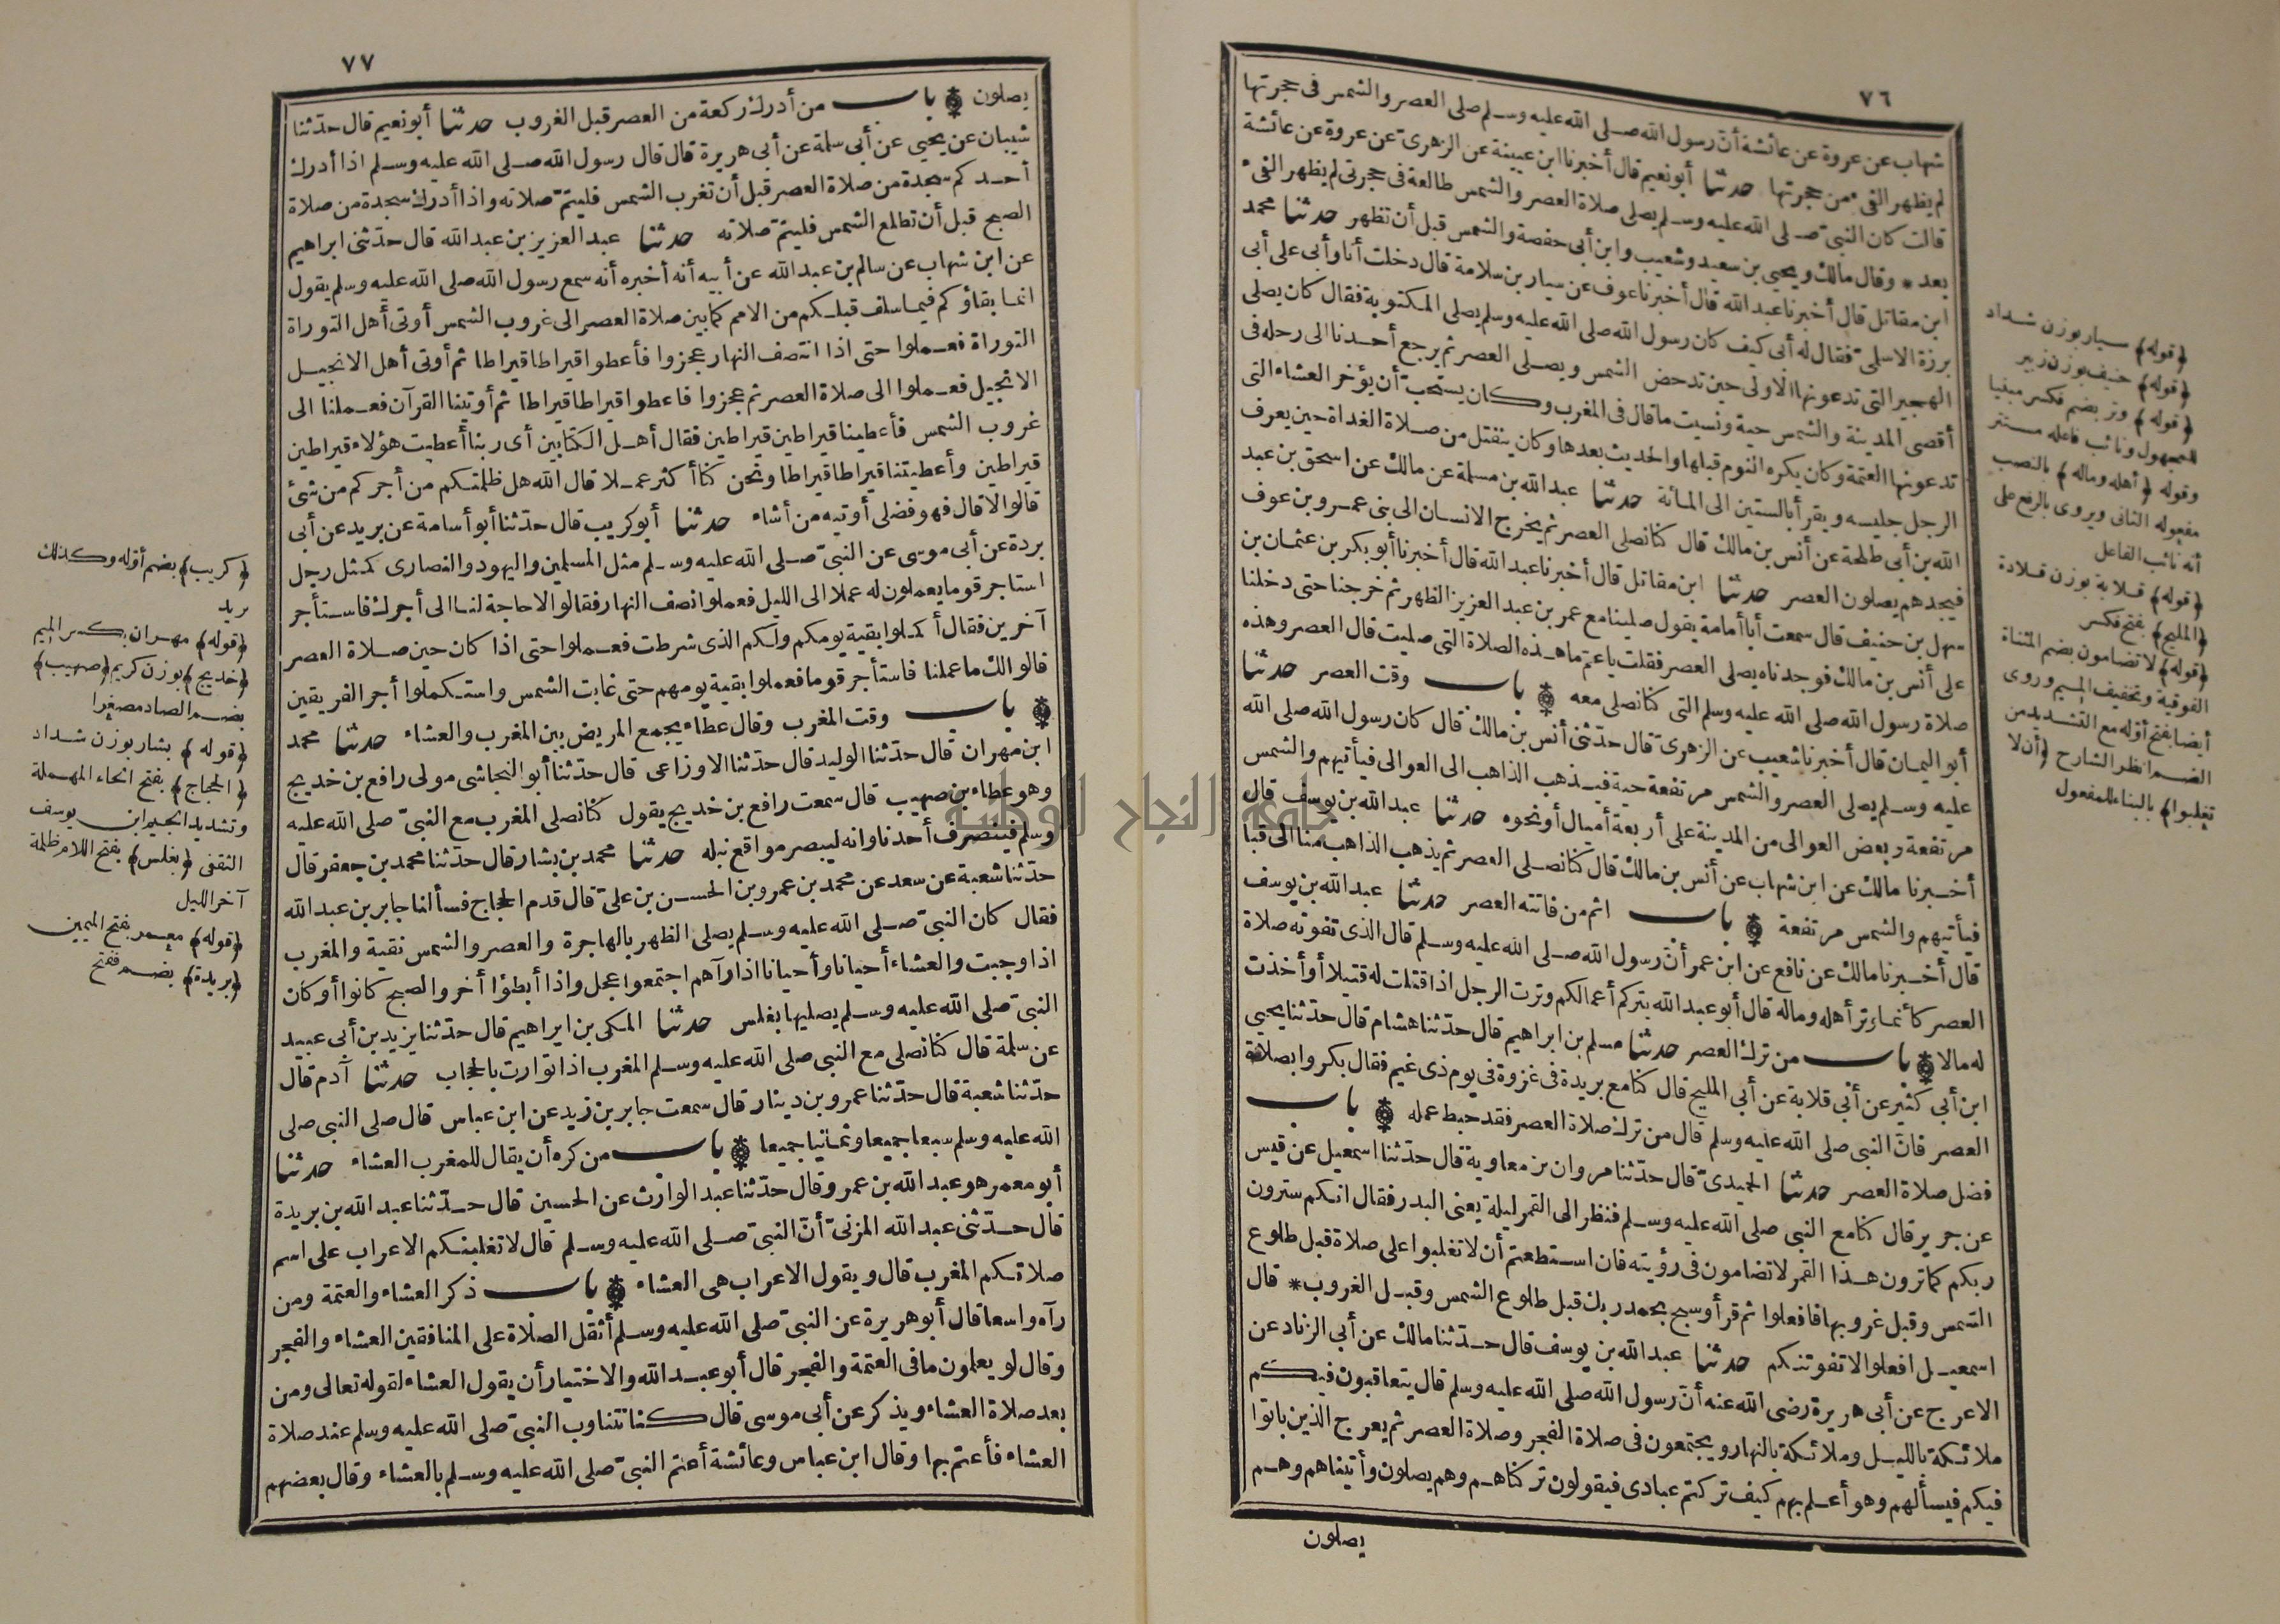 ٧٦
شهاب عن عروة عن عائشة أن رسول الله صلى الله عليه وسلم صلى العصر والشمس فى حجرتها
لم يظهر الفىء من حجرتها حدثنا أبو نعيم قال أخبرنا ابن عيينة عن الزهرى عن عروة عن عائشة
قالت كان النبى صلى الله عليه وسلم يصلى صلاة العصر والشمس طالعة فى حجرتى لم يظهر الفىء
بعد * وقال مالك ويحيى بن سعيد وشعيب وابن أبى حفصة والشمس قبل أن تظهر حدثنا محمد
ابن مقاتل قال أخبرنا عبد الله قال أخبرنا عوف عن سيار بن سلامة قال دخلت أنا وأبى على أبى
برزة الاسلمى فقال له أبى كيف كان رسول الله صلى الله عليه وسلم يصلى المكتوبة فقال كان يصلى
الهجير التى تدعونها الاولى حين تدحض الشمس ويصلى العصر ثم يرجع أحدنا الى رحله فى
أقصى المدينة والشمس حية ونسيت ما قال فى المغرب وكان يستحب أن يؤخر العشاء التى
تدعونها العتمة وكان يكره النوم قبلها والحديث بعدها وكان ينفتل من صلاة الغداة حين يعرف
الرجل جليسه ويقرأ بالستين الى المائة حدثنا عبد الله بن مسلمة عن مالك عن اسحق بن عبد
الله بن أبى طلحة عن أنس بن مالك قال كنا نصلى العصر ثم يخرج الانسان الى بنى عمرو بن عوف
فيجدهم يصلون العصر حدثنا ابن مقاتل قال أخبرنا عبد الله قال أخبرنا أبو بكر بن عثمان بن
سهل بن حنيف قال سمعت أبا أمامة يقول صلينا مع عمر بن عبد العزيز الظهر ثم خرجنا حتى دخلنا
على أنس بن مالك فوجدناه يصلى العصر فقلت يا عم ما هذه الصلاة التى صليت قال العصر وهذه
صلاة رسول الله صلى الله عليه وسلم التى كنا نصلى معه باب وقت العصر حدثنا
أبو اليمان قال أخبرنا شعيب عن الزهرى قال حدثنى أنس بن مالك قال كان رسول الله صلى الله
عليه وسلم يصلى العصر والشمس مرتفعة حية فيذهب الذاهب الى العوالى فيأتيهم والشمس
مرتفعة وبعض العوالى من المدينة على أربعة أميال أو نحوه حدثنا عبد الله بن يوسف قال
أخبرنا مالك عن ابن شهاب عن أنس بن مالك قال كنا نصلى العصر ثم يذهب الذاهب منا الى قبا
فيأتيهم والشمس مرتفعة باب اثم من فاتته العصر حدثنا عبد الله بن يوسف
قال أخبرنا مالك عن نافع عن ابن عمر أن رسول الله صلى الله عليه وسلم قال الذى تفوته صلاة
العصر كأنما وتر أهله وماله قال أبو عبد الله يتركم أعمالكم وترت الرجل اذا قتلت له قتيلا أو أخذت
له مالا باب من ترك العصر حدثنا مسلم بن ابراهيم قال حدثنا هشام قال حدثنا يحيى
ابن أبى كثير عن أبى قلابة عن أبى المليح قال كنا مع بريدة فى غزوة فى يوم ذى غيم فقال بكروا بصلاة
العصر فان النبى صلى الله عليه وسلم قال من ترك صلاة العصر فقد حبط عمله باب
فضل صلاة العصر حدثنا الحميدى قال حدثنا مروان بن معاوية قال حدثنا اسمعيل عن قيس
عن جرير قال كنا مع النبى صلى الله عليه وسلم فنظر الى القمر ليلة يعنى البدر فقال انكم سترون
ربكم كما ترون هذا القمر لا تضامون فى رؤيته فان استطعتم أن لا تغلبوا على صلاة قبل طلوع
الشمس وقبل غروبها فافعلوا ثم قرأ وسبح بحمد ربك قبل طلوع الشمس وقبل الغروب * قال
اسمعيل افعلوا لا تفوتنكم حدثنا عبد الله بن يوسف قال حدثنا مالك عن أبى الزناد عن
الاعرج عن أبى هريرة رضى الله عنه أن رسول الله صلى الله عليه وسلم قال يتعاقبون فيكم
ملائكة بالليل وملائكة بالنهار ويجتمعون فى صلاة الفجر وصلاة العصر ثم يعرج الذين باتوا
فيكم فيسألهم وهو أعلم بهم كيف تركتم عبادى فيقولون تركناهم وهم يصلون وأتيناهم وهم
يصلون
﴿قوله﴾ سيار بوزن شداد
﴿قوله﴾ حنيف بوزن زبير
﴿قوله﴾ وتر بضم فكسر مبنيا
للمجهول ونائب فاعله مستتر
وقوله ﴿أهله وماله﴾ بالنصب
مفعوله الثانى ويروى بالرفع على
أنه نائب الفاعل
﴿قوله﴾ قلابة بوزن قلادة
﴿المليح﴾ بفتح فكسر
﴿قوله﴾ لا تضامون بضم المثناة
الفوقية وتخفيف الميم وروى
أيضا بفتح أوله مع التشديد من
الضم انظر الشارح ﴿أن لا
تغلبوا﴾ بالبناء للمفعول
٧٧
يصلون باب من أدرك ركعة من العصر قبل الغروب حدثنا أبو نعيم قال حدثنا
شيبان عن يحيى عن أبى سلمة عن أبى هريرة قال قال رسول الله صلى الله عليه وسلم اذا أدرك
أحدكم سجدة من صلاة العصر قبل أن تغرب الشمس فليتم صلاته واذا أدرك سجدة من صلاة
الصبح قبل أن تطلع الشمس فليتم صلاته حدثنا عبد العزيز بن عبد الله قال حدثنى ابراهيم
عن ابن شهاب عن سالم بن عبد الله عن أبيه أنه أخبره أنه سمع رسول الله صلى الله عليه وسلم يقول
انما بقاؤكم فيما سلف قبلكم من الامم كما بين صلاة العصر الى غروب الشمس أوتى أهل التوراة
التوراة فعملوا حتى اذا انتصف النهار عجزوا فأعطوا قيراطا قيراطا ثم أوتى أهل الانجيل
الانجيل فعملوا الى صلاة العصر ثم عجزوا فاعطوا قيراطا قيراطا ثم أوتينا القرآن فعملنا الى
غروب الشمس فأعطينا قيراطين قيراطين فقال أهل الكتابين أى ربنا أعطيت هؤلاء قيراطين
قيراطين وأعطيتنا قيراطا قيراطا ونحن كنا أكثر عملا قال الله هل ظلمتكم من أجركم من شئ
قالوا لا قال فهو فضلى أوتيه من أشاء حدثنا أبو كريب قال حدثنا أبو أسامة عن بريد عن أبى
بردة عن أبى موسى عن النبى صلى الله عليه وسلم مثل المسلمين واليهود والنصارى كمثل رجل
استاجر قوما يعملون له عملا الى الليل فعملوا نصف النهار فقالوا لا حاجة لنا الى أجرك فاستأجر
آخرين فقال أكملوا بقية يومكم ولكم الذى شرطت فعملوا حتى اذا كان حين صلاة العصر
قالوا لك ما عملنا فاستأجر قوما فعملوا بقية يومهم حتى غابت الشمس واستكملوا أجر الفريقين
باب وقت المغرب وقال عطاء يجمع المريض بين المغرب والعشاء حدثنا محمد
ابن مهران قال حدثنا الوليد قال حدثنا الاوزاعى قال حدثنا أبو النجاشى مولى رافع بن خديج
وهو عطاء بن صهيب قال سمعت رافع بن خديج يقول كنا نصلى المغرب مع النبى صلى الله عليه
وسلم فينصرف أحدنا وانه ليبصر مواقع نبله حدثنا محمد بن بشار قال حدثنا محمد بن جعفر قال
حدثنا شعبة عن سعد عن محمد بن عمرو بن الحسن بن على قال قدم الحجاج فسألنا جابر بن عبد الله
فقال كان النبى صلى الله عليه وسلم يصلى الظهر بالهاجرة والعصر والشمس نقية والمغرب
اذا وجبت والعشاء أحيانا وأحيانا اذا رآهم اجتمعوا عجل واذا أبطؤا أخر والصبح كانوا أو كان
النبى صلى الله عليه وسلم يصليها بغلس حدثنا المكى بن ابراهيم قال حدثنا يزيد بن أبى عبيد
عن سلمة قال كنا نصلى مع النبى صلى الله عليه وسلم المغرب اذا توارت بالحجاب حدثنا آدم قال
حدثنا شعبة قال حدثنا عمرو بن دينار قال سمعت جابر بن زيد عن ابن عباس قال صلى النبى صلى
الله عليه وسلم سبعا جميعا وثمانيا جميعا باب من كره أن يقال للمغرب العشاء حدثنا
أبو معمر هو عبد الله بن عمرو قال حدثنا عبد الوارث عن الحسين قال حدثنا عبد الله بن بريدة
قال حدثنى عبد الله المزنى أن النبى صلى الله عليه وسلم قال لا تغلبنكم الاعراب على اسم
صلاتكم المغرب قال ويقول الاعراب هى العشاء باب ذكر العشاء والعتمة ومن
رآه واسعا قال أبو هريرة عن النبى صلى الله عليه وسلم أثقل الصلاة على المنافقين العشاء والفجر
وقال لو يعلمون ما فى العتمة والفجر قال أبو عبد الله والاختيار أن يقول العشاء لقوله تعالى ومن
بعد صلاة العشاء ويذكر عن أبى موسى قال كنا نتناوب النبى صلى الله عليه وسلم عند صلاة
العشاء فأعتم بها وقال ابن عباس وعائشة أعتم النبى صلى الله عليه وسلم بالعشاء وقال بعضهم
﴿كريب﴾ بضم أوله وكذلك
بريد
﴿قوله﴾ مهران بكسر الميم
﴿خديج﴾ بوزن كريم ﴿صهيب﴾
بضم الصاد مصغرا
﴿قوله﴾ بشار بوزن شداد
﴿الحجاج﴾ بفتح الحاء المهملة
وتشديد الجيم ابن يوسف
الثقفى ﴿بغلس﴾ بفتح اللام ظلمة
آخر الليل
﴿قوله﴾ معمر بفتح الميمين
﴿بريدة﴾ بضم ففتح
جامعة النجاح الوطنية